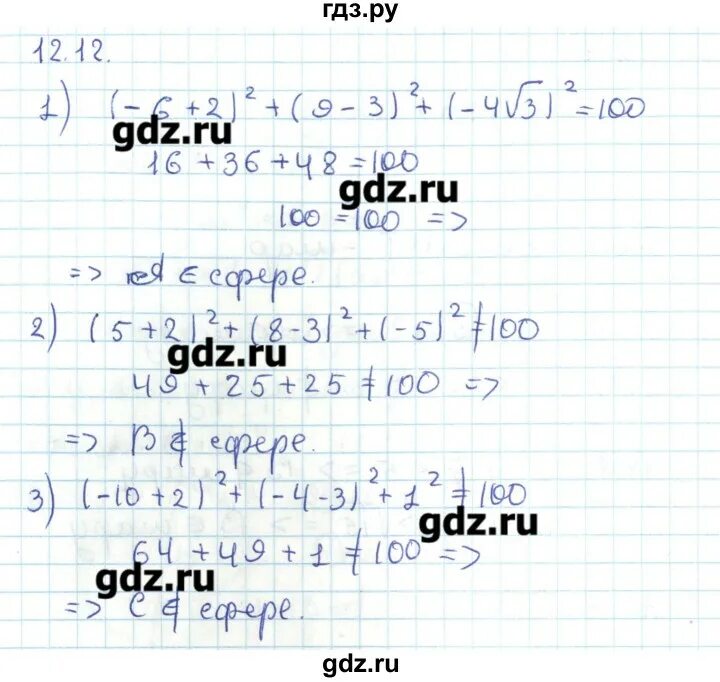 гдз.ру
12.12.
1) (-6+2)² + (9-3)² + (-4√3)² = 100
gdz.ru
16 + 36 + 48 = 100
gdz.ru
100 = 100 =>
=> A ∈ сфере.
2) (5+2)² + (8-3)² + (-5)² ≠ 100
gdz.ru
49 + 25 + 25 ≠ 100 =>
=> B ∉ сфере.
3) (-10+2)² + (-4-3)² + 1² ≠ 100
gdz.ru
64 + 49 + 1 ≠ 100 =>
gdz.ru
=> C ∉ сфере.
gdz.ru